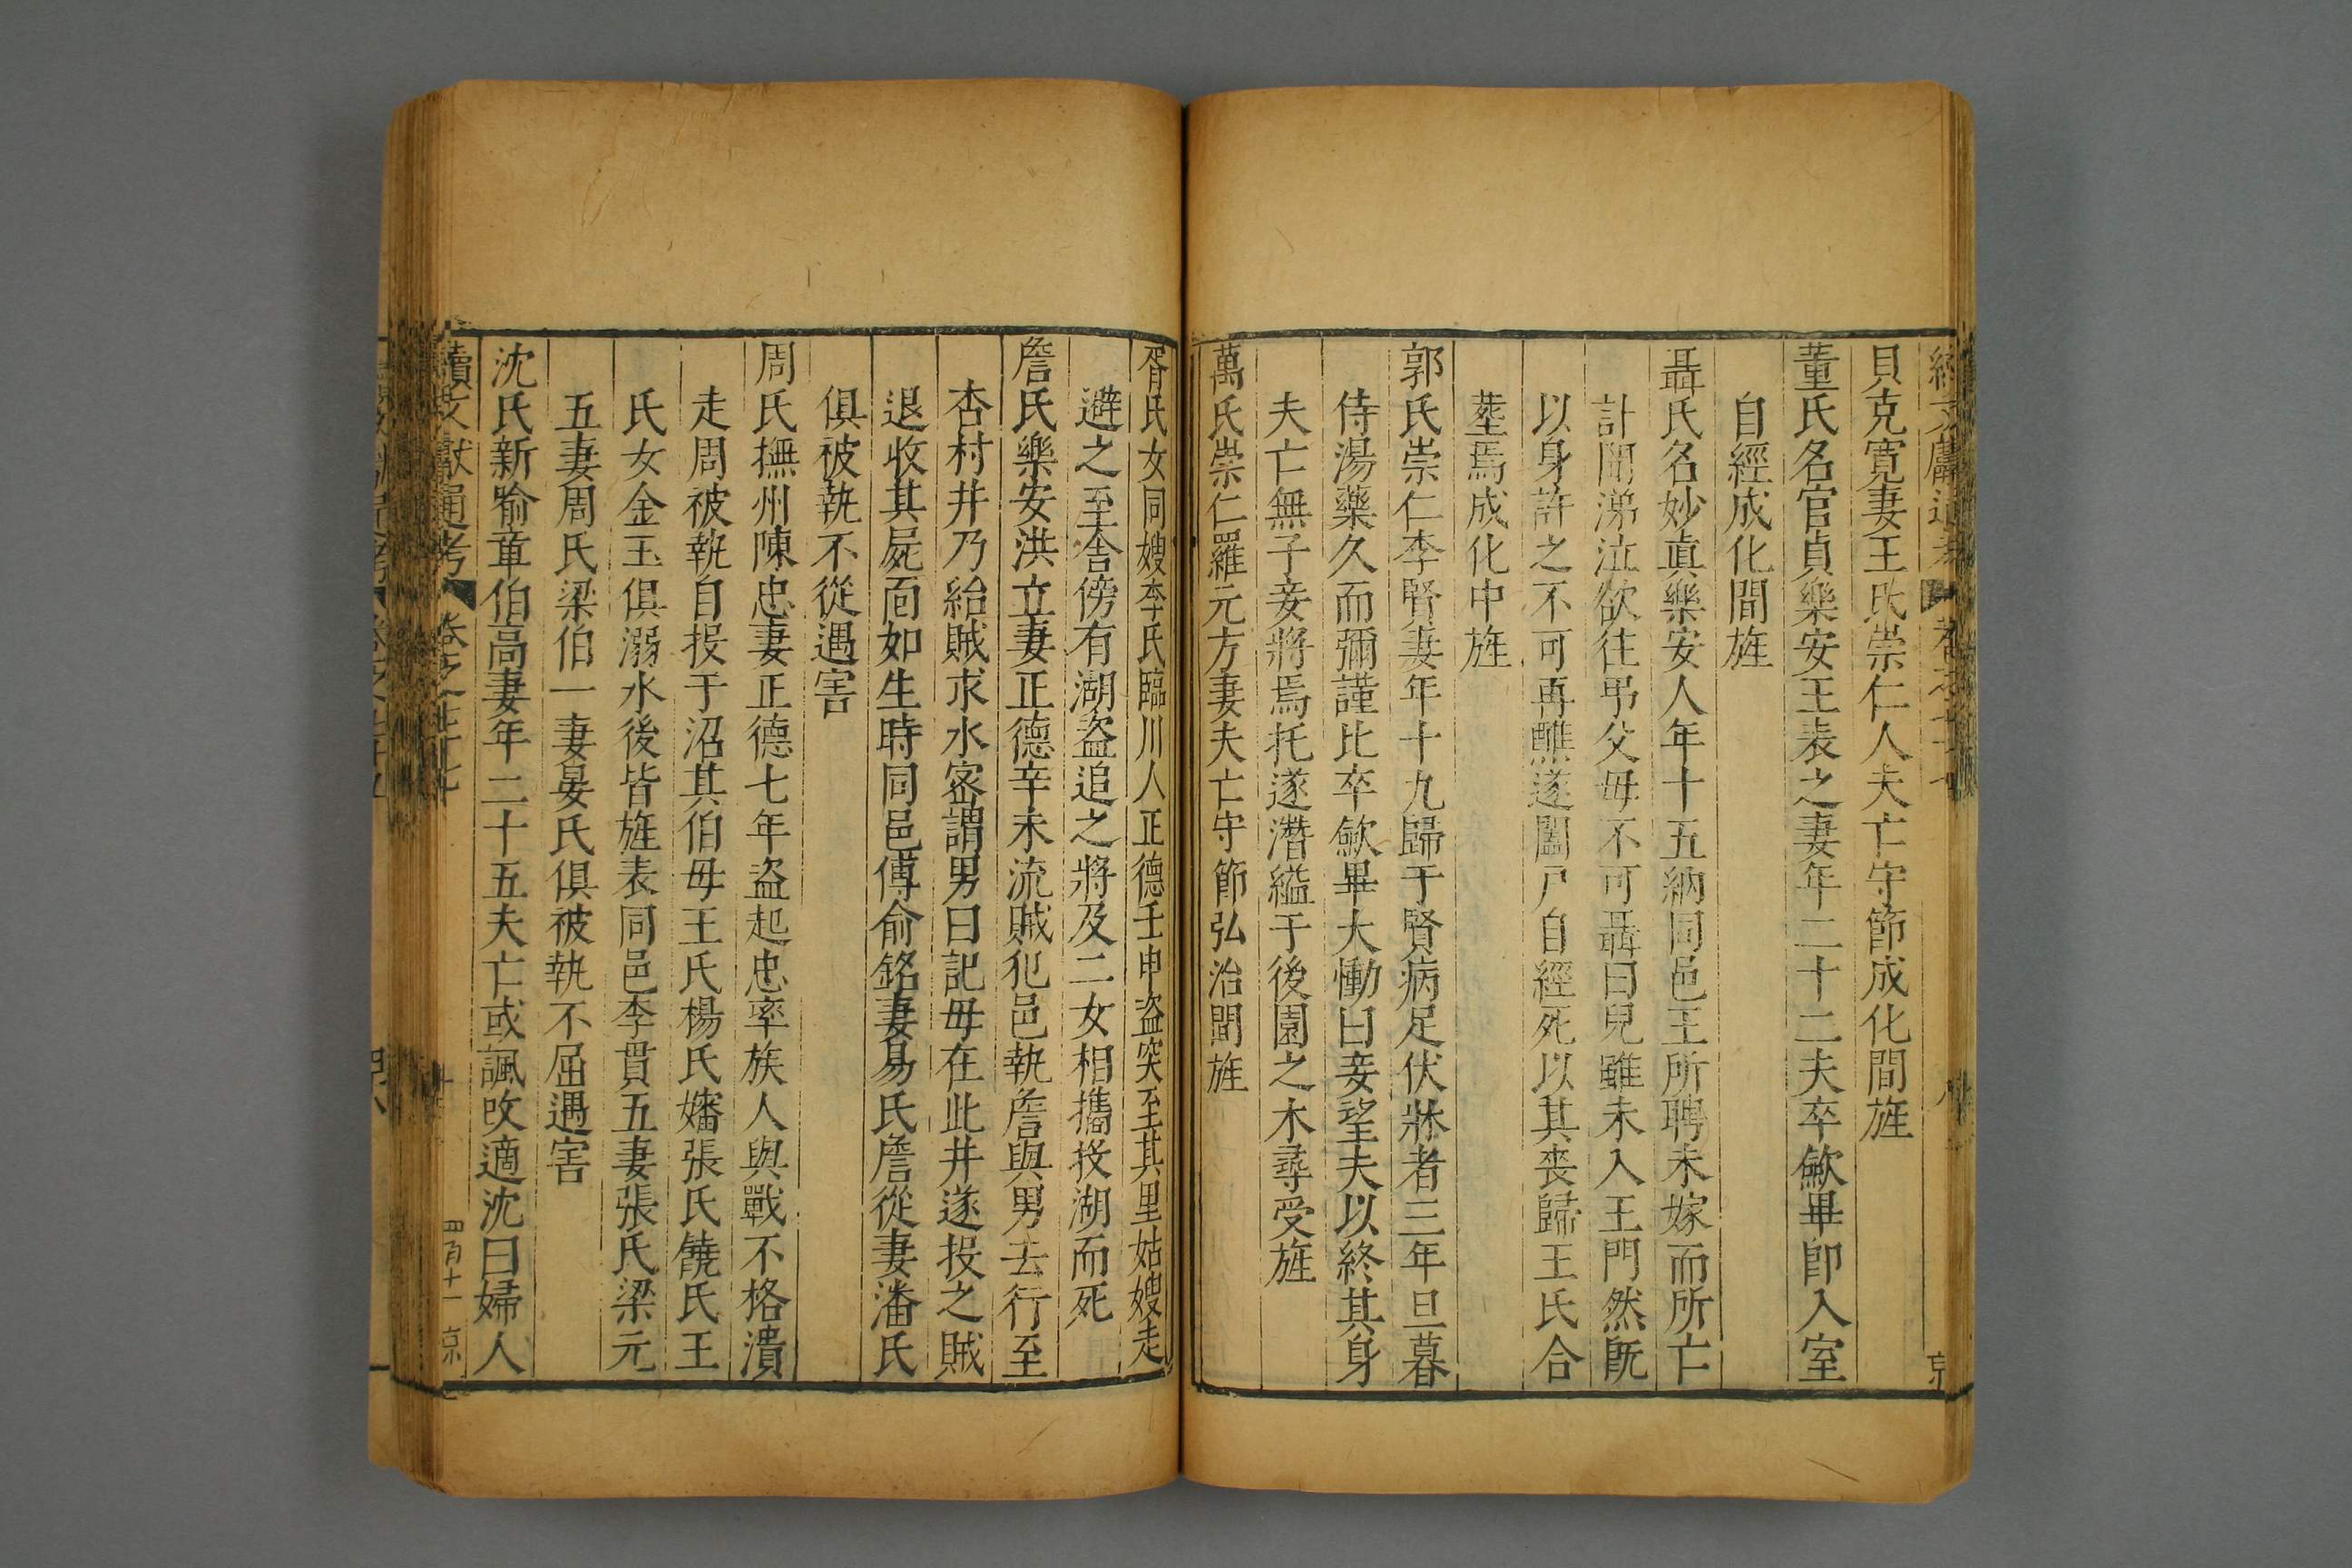 貝克寛妻王氏崇仁人夫亡守節成化間旌
董氏名官貞樂安王表之妻年二十二夫卒歛畢卽入室
自經成化間旌
聶氏名妙眞樂安人年十五納同邑王所聘未嫁而所亡
計聞涕泣欲往弔父母不可聶曰兒雖未入王門然旣
以身許之不可再醮遂闔戸自經死以其喪歸王氏合
塟焉成化中旌
郭氏崇仁李賢妻年十九歸于賢病足伏牀者三年旦暮
侍湯藥久而彌謹比卒歛畢大慟曰妾望夫以終其身
夫亡無子妾將焉托遂潛縊于後園之木尋受旌
萬氏崇仁羅元方妻夫亡守節弘治間旌
胥氏女同嫂李氏臨川人正德壬申盗突至其里姑嫂走
避之至舍傍有湖盗追之將及二女相攜投湖而死
詹氏樂安洪立妻正德辛未流賊犯邑執詹與男去行至
杏村井乃紿賊求水宻謂男曰記毋在此井遂投之賊
退收其屍面如生時同邑傅俞銘妻易氏詹從妻潘氏
俱被執不從遇害
周氏撫州陳忠妻正德七年盗起忠率族人與戰不格潰
走周被執自投于沼其伯母王氏楊氏嬸張氏饒氏王
氏女金玉俱溺水後皆旌表同邑李貫五妻張氏梁元
五妻周氏梁伯一妻晏氏俱被執不屈遇害
沈氏新喻章伯高妻年二十五夫亡或諷改適沈曰婦人
續文獻通考 卷之七十七